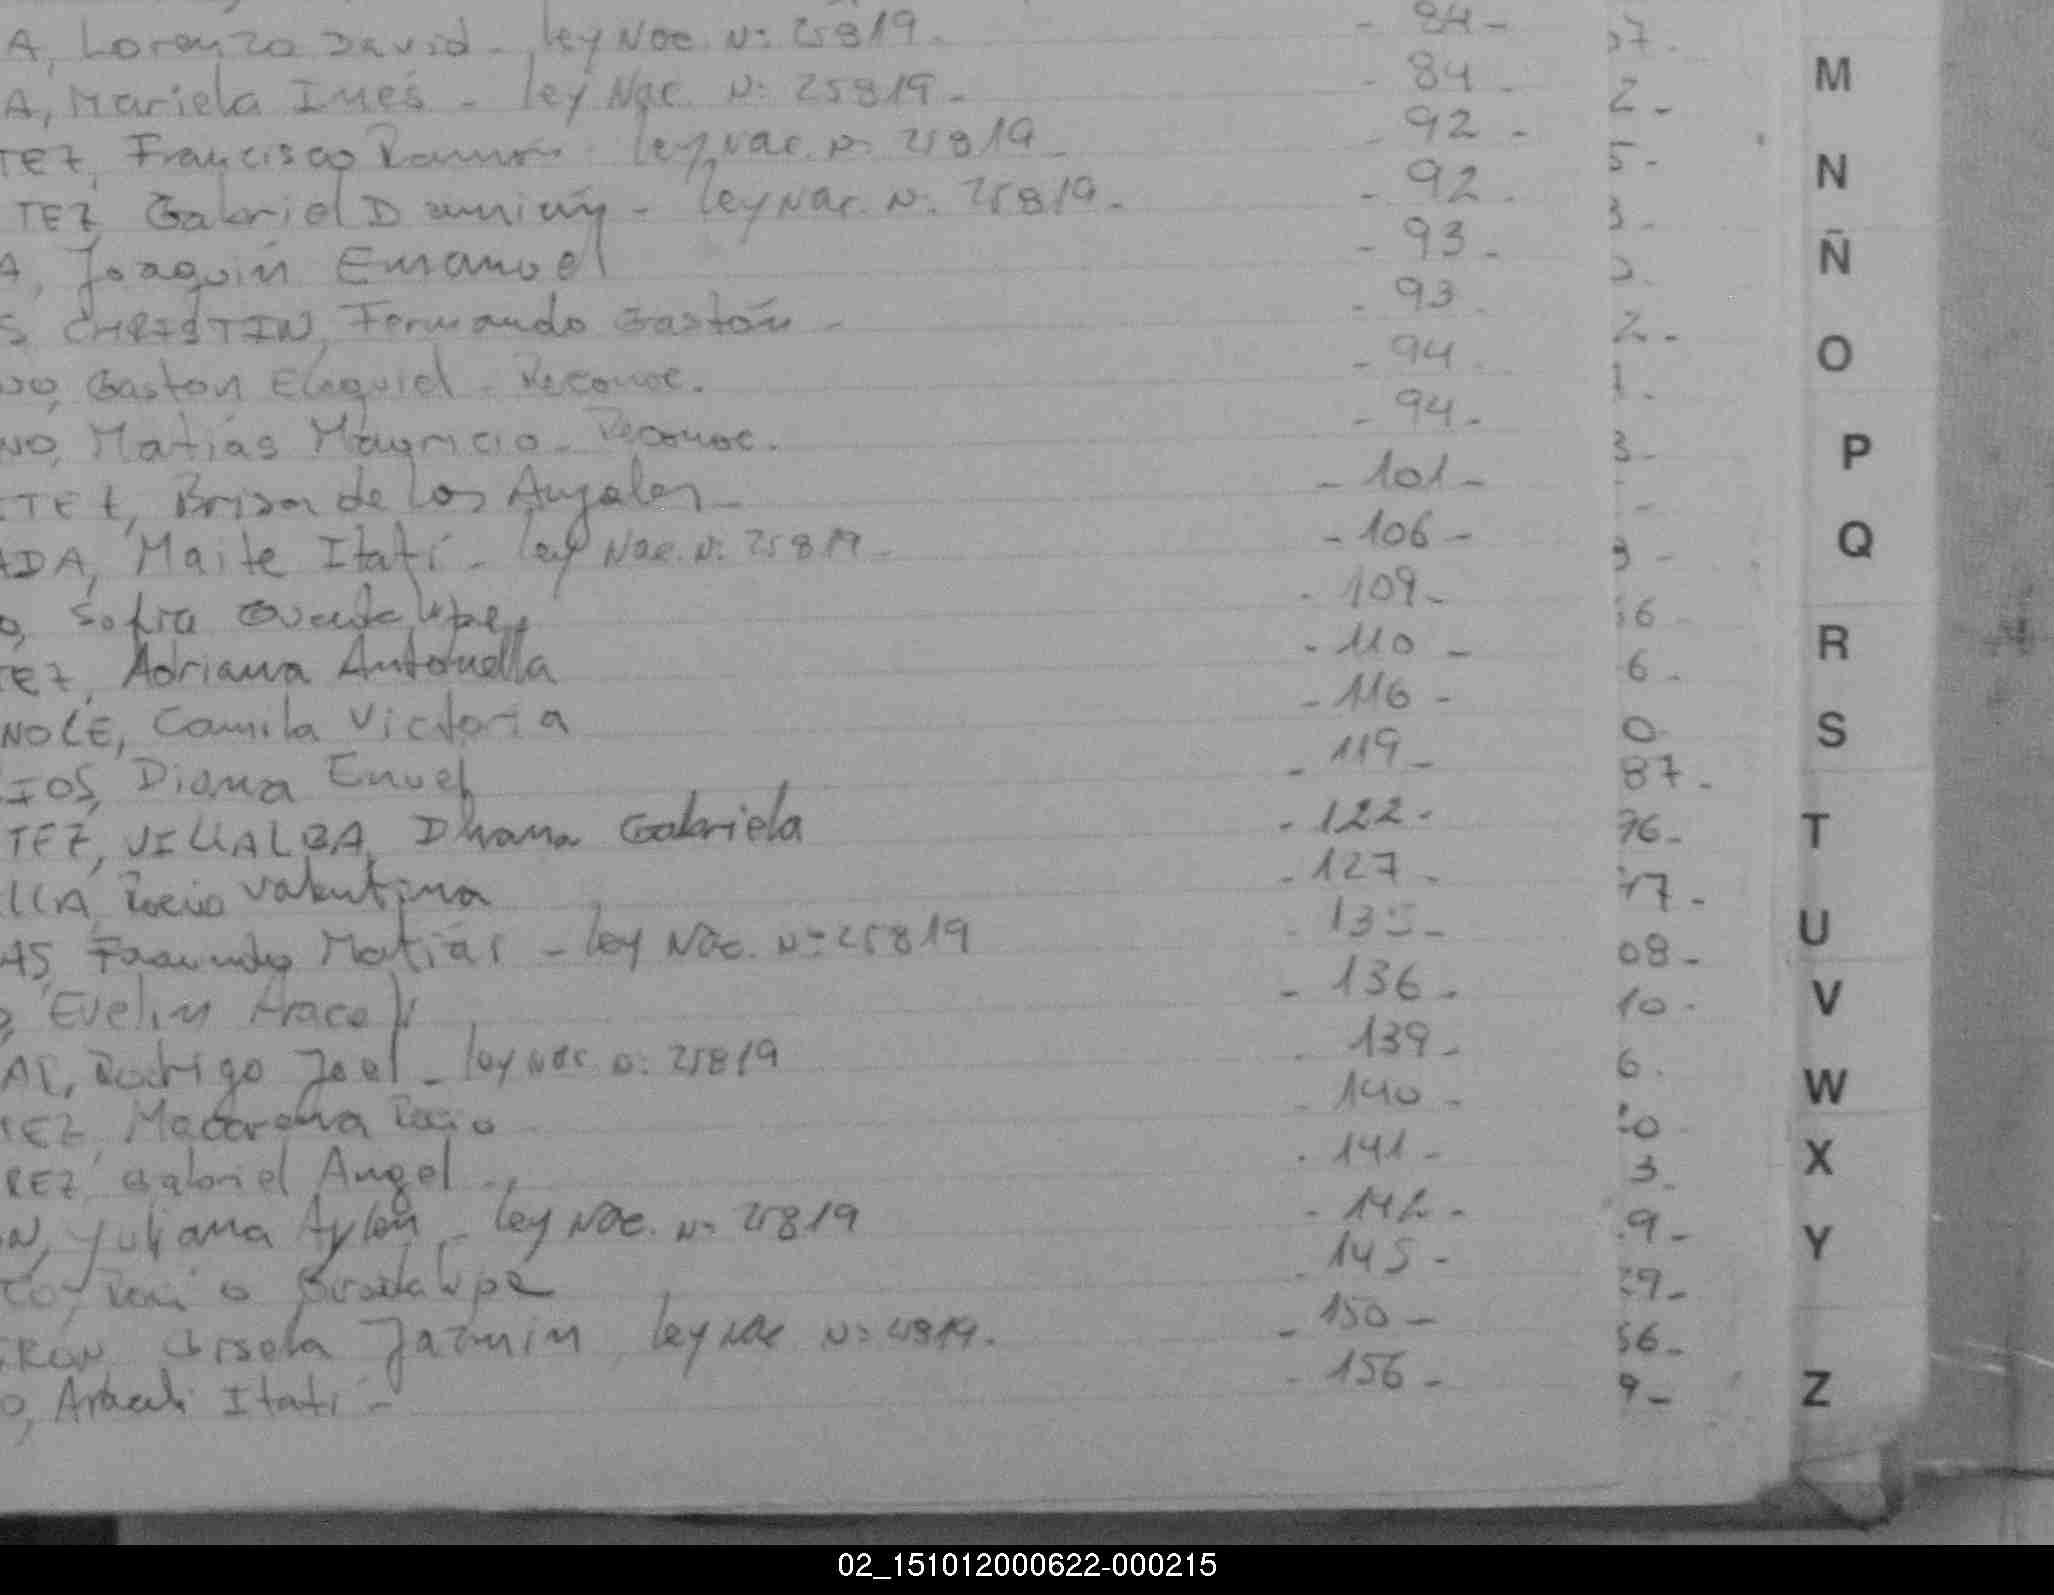 A, Lorenzo David - ley Nac. N: 25819 - - 84 - 37 -
A, Mariela Inés - ley Nac. N: 25819 - - 84 - 2 -
M
TEZ, Francisco Ramón - ley Nac. N: 25819 - - 92 - 5 -
N
TEZ, Gabriel Damián - ley Nac. N: 25819 - - 92 - 3 -
A, Joaquín Emanuel - 93 -
Ñ
S CHRISTIN, Fernando Gastón - - 93 - 2 -
O
Gaston Eleguiel - Reconoc. - 94 - 1 -
NO, Matías Mauricio - Reconoc. - 94 - 3 -
P
ITEZ, Brisa de Los Angeles - - 101 -
Q
ADA, Maite Itatí - ley Nac. N: 25819 - - 106 - 3 -
O, Sofia Guadalupe, - 109 - 6 -
R
TEZ, Adriana Antonella - 110 - 6 -
NOLE, Camila Victoria - 116 - 0 -
S
IOS, Diana - 119 - 87 -
TEZ, VILLALBA, Dhana Gabriela - 122 - 76 -
T
LLA, Rocio Valentina - 127 - 17 -
AS, Facundo Matías - ley Nac. N: 25819 - 135 - 08 -
U
Evelin Araceli - 136 - 10 -
V
AL, Rodrigo Joel - ley Nac. N: 25819 - 139 - 6 -
W
EZ, Macarena Rocio - 140 - 0 -
REZ, Gabriel Angel - - 141 - 3 -
X
N, Yuliana Aylen - ley Nac. N: 25819 - 142 - 9 -
Y
Rocio Guadalupe - 145 - 29 -
RON, Gisela Jazmin, ley Nac N: 25819 - - 150 - 56 -
O, Araceli Itatí - - 156 - 9 -
Z
02_151012000622-000215